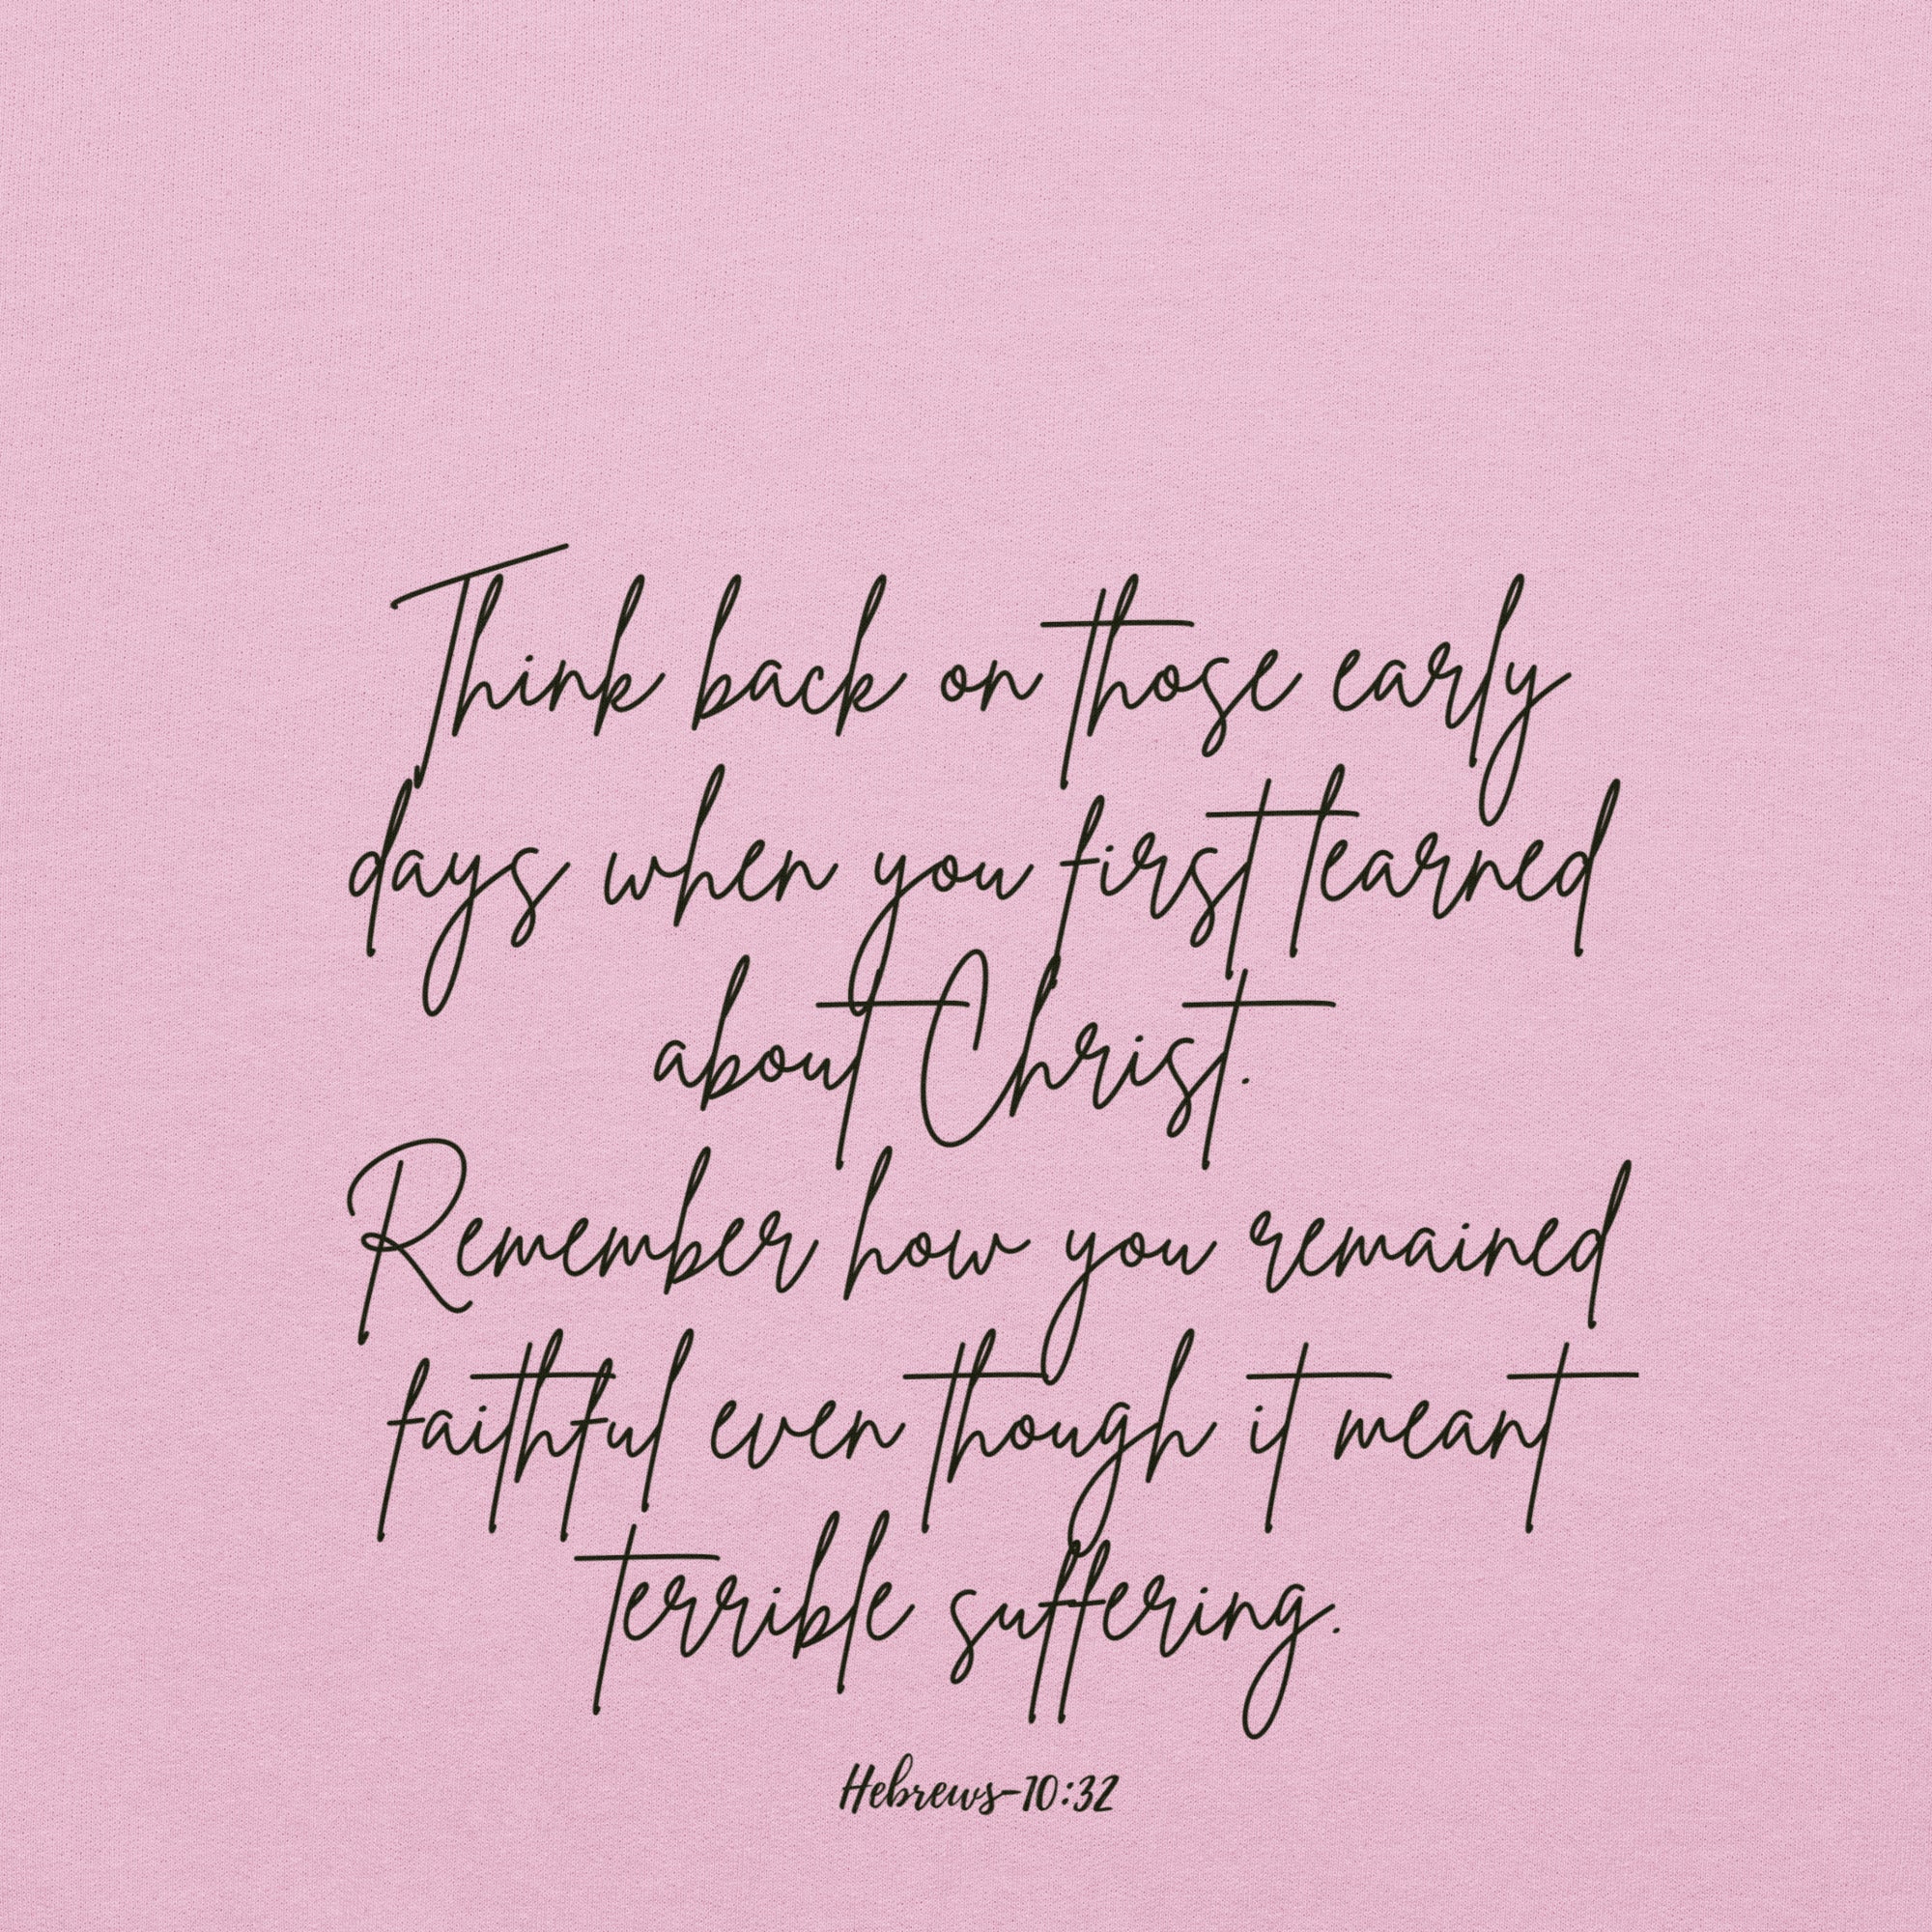 Think back on those early
days when you first learned
about Christ.
Remember how you remained
faithful even though it meant
terrible suffering.
Hebrews-10:32